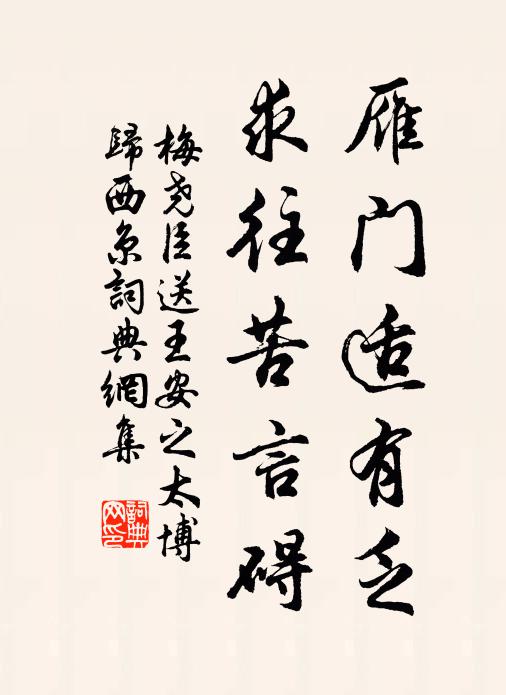 雁门适有乏
求往苦言碍
梅尧臣送王安之太博
歸西京詞典網集
詞典
网印